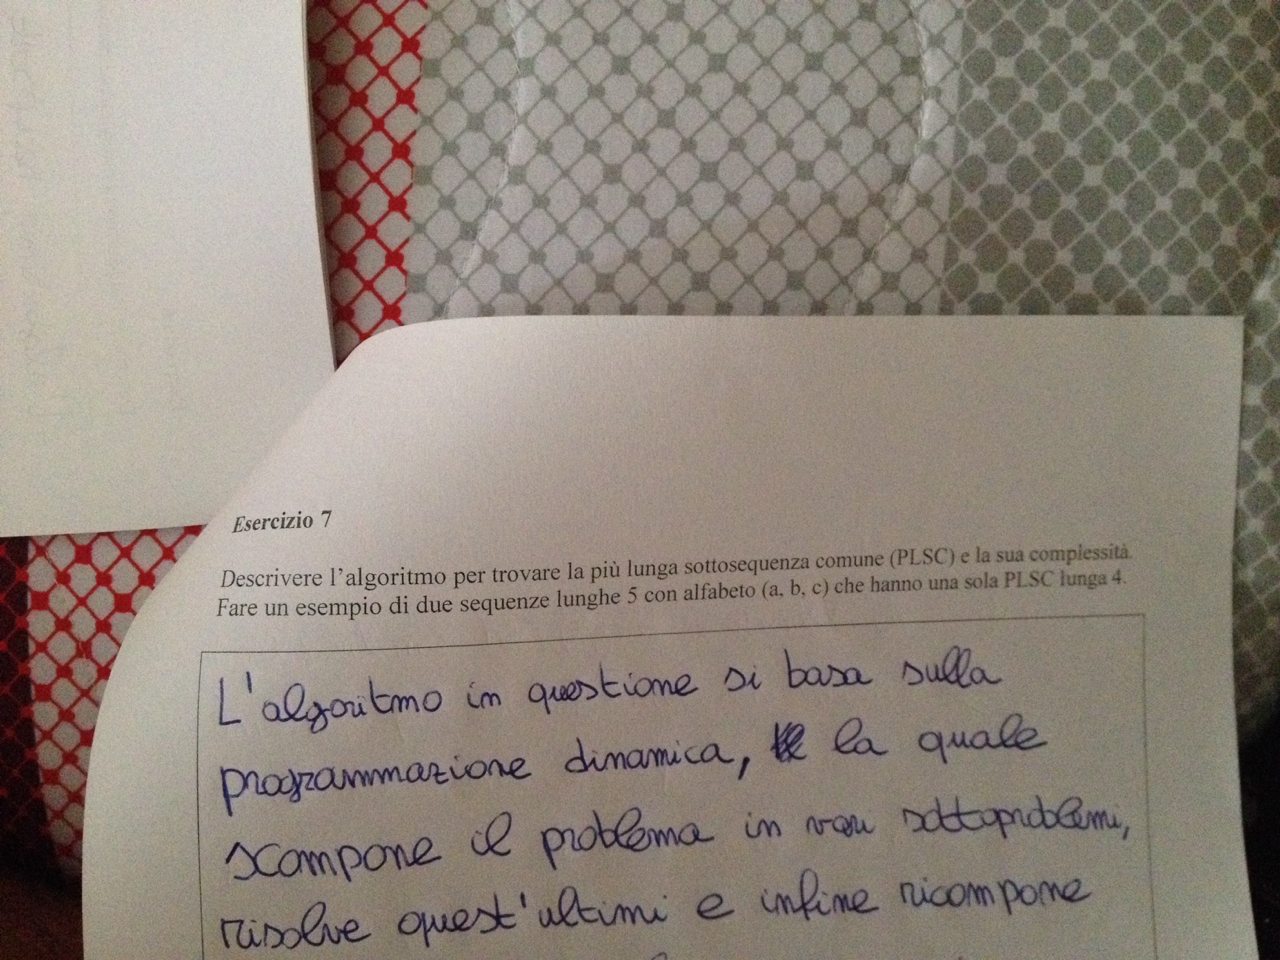 Esercizio 7
Descrivere l'algoritmo per trovare la più lunga sottosequenza comune (PLSC) e la sua complessità.
Fare un esempio di due sequenze lunghe 5 con alfabeto (a, b, c) che hanno una sola PLSC lunga 4.
L'algoritmo in questione si basa sulla
programmazione dinamica, la quale
scompone il problema in vari sottoproblemi,
risolve quest'ultimi e infine ricompone